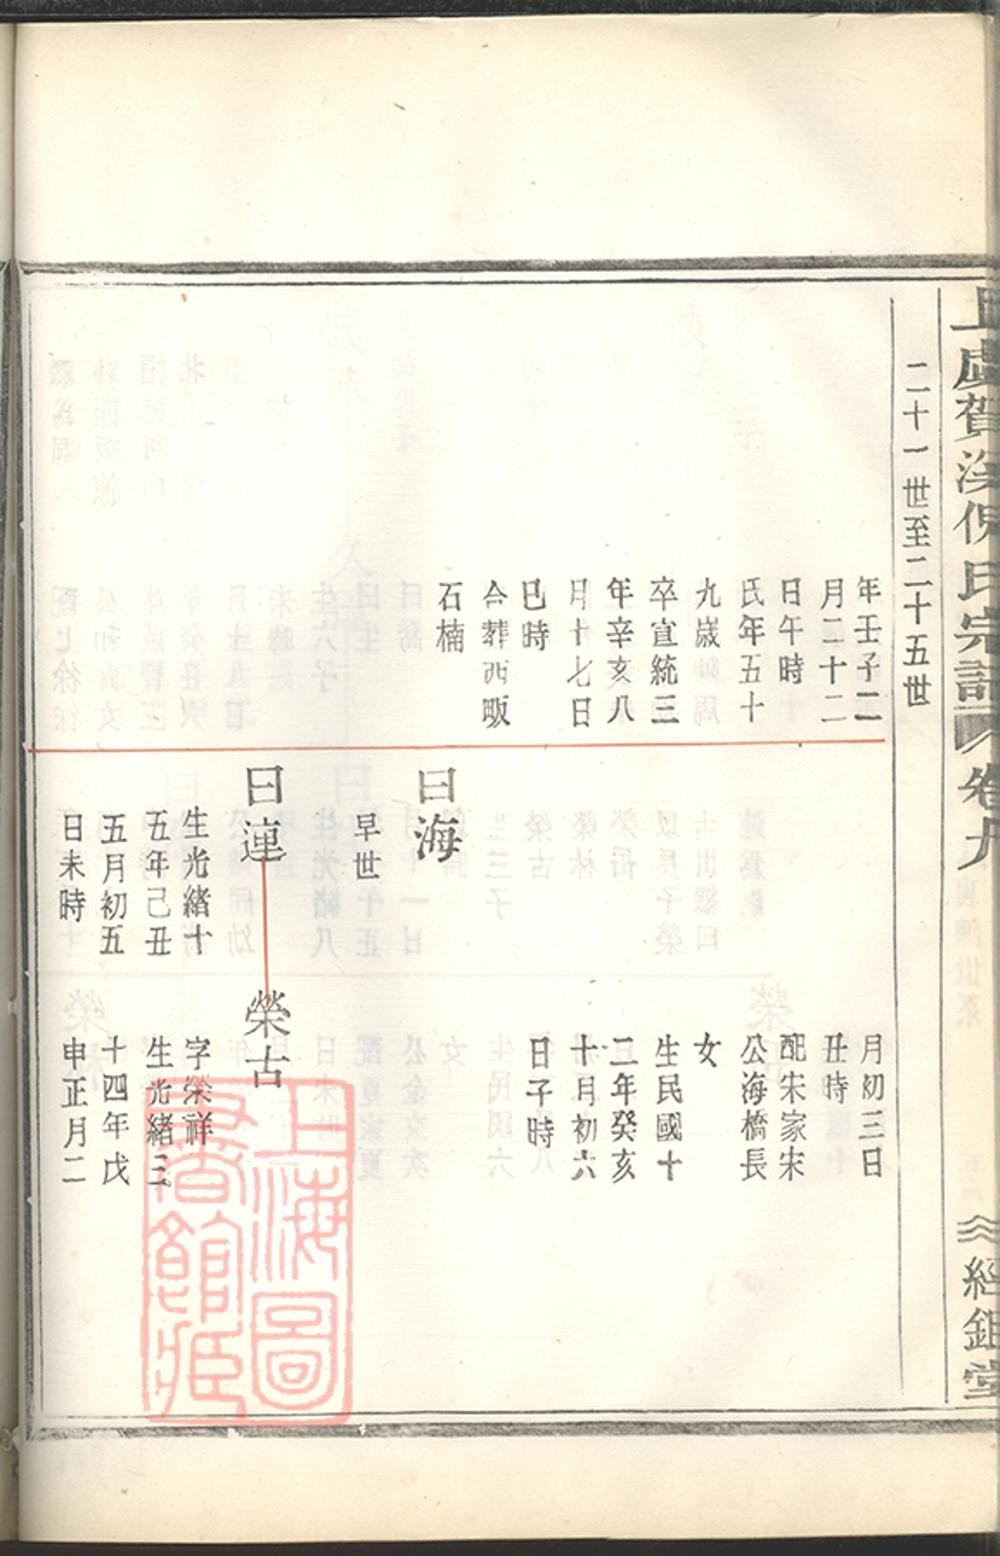 丘虞賀溪倪氏宗譜
卷九
經鉏堂
二十一世至二十五世
年壬子二
月二十二
日午時
氏年五十
九歲
卒宣統三
年辛亥八
月十七日
巳時
合葬西畈
石楠
曰海
早世
曰蓮
生光緒十
五年己丑
五月初五
日未時
月初三日
丑時
配宋家宋
公海橋長
女
生民國十
二年癸亥
十月初六
日子時
榮古
字榮祥
生光緒三
十四年戊
申正月二
上海圖
書館藏